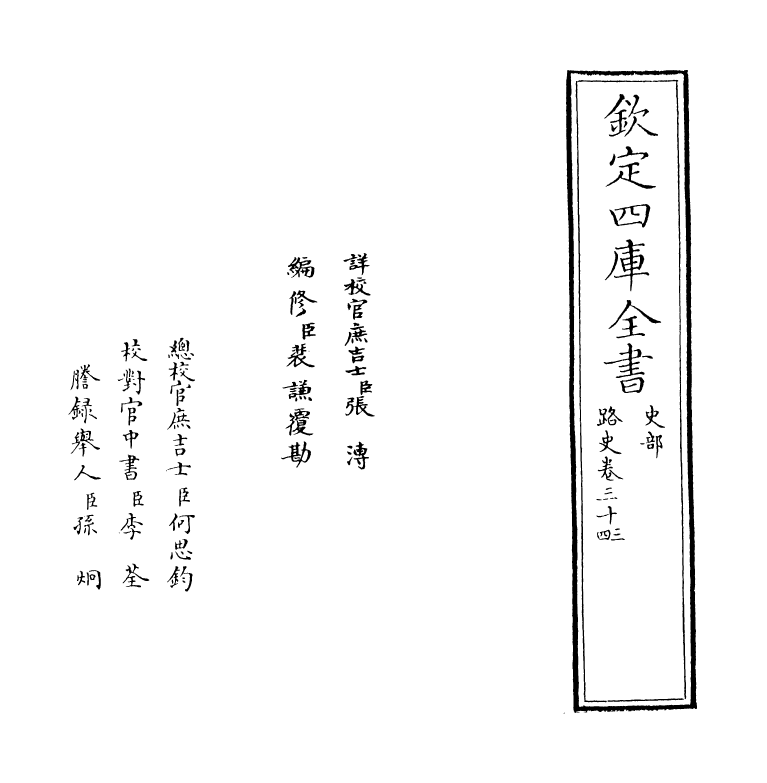 欽定四庫全書
史部
路史卷三十三四
詳校官庶吉士臣張溥
編修臣裴謙覆勘
總校官庶吉士臣何思鈞
校對官中書臣李荃
謄録舉人臣孫炯